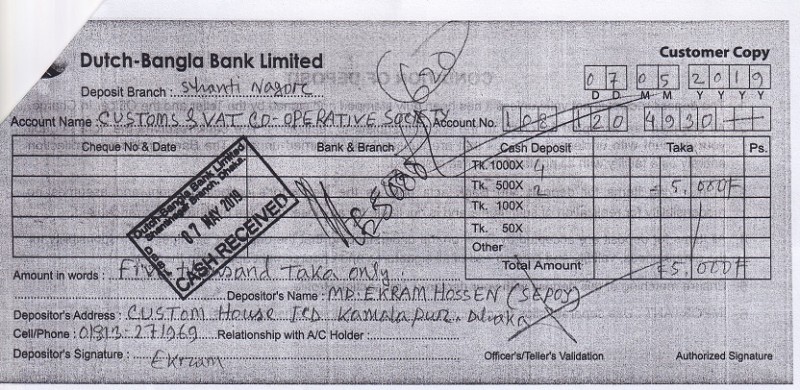 Dutch-Bangla Bank Limited
Customer Copy
Deposit Branch : Shanti Nagore
07 05 2019
D D M M Y Y Y Y
Account Name : CUSTOMS & VAT CO-OPERATIVE SOCIETY Account No. 108 120 4930
Cheque No & Date Bank & Branch Cash Deposit Taka Ps.
Tk. 1000X 4
Tk. 500X 2 =5,000/=
Tk. 100X
Tk. 50X
Other
Total Amount =5,000/=
Dutch-Bangla Bank Limited
Shantinagar Branch, Dhaka.
07 MAY 2019
CASH RECEIVED
Amount in words : Five thousand Taka only.
Depositor's Name : MD. EKRAM HOSSEN (SEPOY)
Depositor's Address : CUSTOM House ICD Kamalapur. Dhaka
Cell/Phone : 01813-271969 Relationship with A/C Holder :
Depositor's Signature : Ekram
Officer's/Teller's Validation Authorized Signature